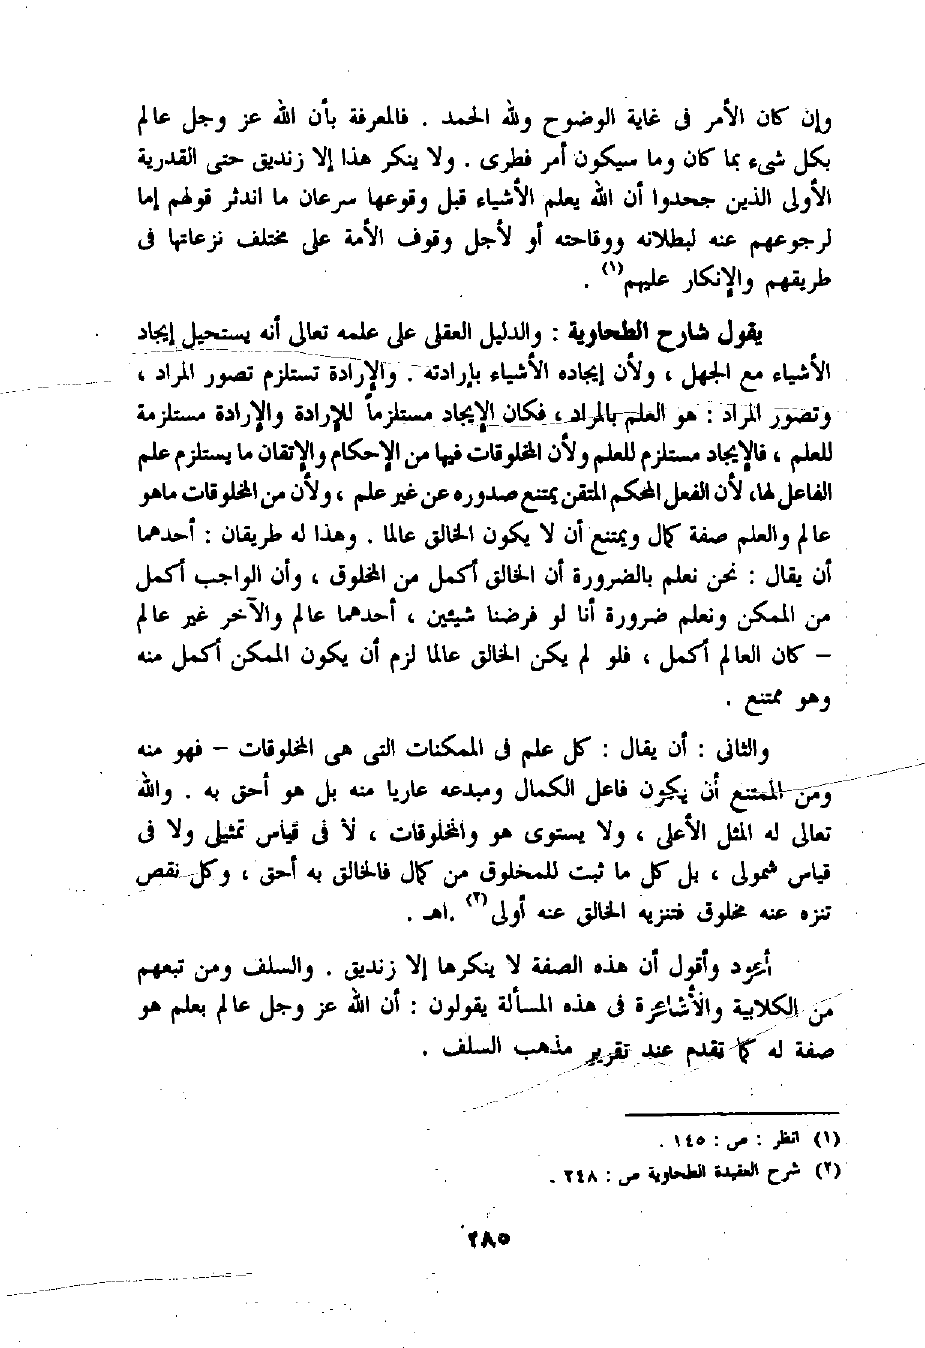 وإن كان الأمر فى غاية الوضوح ولله الحمد . فالمعرفة بأن الله عز وجل عالم
بكل شىء بما كان وما سيكون أمر فطرى . ولا ينكر هذا إلا زنديق حتى القدرية
الأولى الذين جحدوا أن الله يعلم الأشياء قبل وقوعها سرعان ما اندثر قولهم إما
لرجوعهم عنه لبطلانه ووقاحته أو لأجل وقوف الأمة على مختلف نزعاتها فى
طريقهم والإنكار عليهم(١) .
يقول شارح الطحاوية : والدليل العقلى على علمه تعالى أنه يستحيل إيجاد
الأشياء مع الجهل ، ولأن إيجاده الأشياء بإرادته . والإرادة تستلزم تصور المراد ،
وتصور المراد : هو العلم بالمراد ، فكان الإيجاد مستلزماً للإرادة والإرادة مستلزمة
للعلم ، فالإيجاد مستلزم للعلم ولأن المخلوقات فيها من الإحكام والإتقان ما يستلزم علم
الفاعل لها، لأن الفعل المحكم المتقن يمتنع صدوره عن غير علم ، ولأن من المخلوقات ماهو
عالم والعلم صفة كمال ويمتنع أن لا يكون الخالق عالما . وهذا له طريقان : أحدهما
أن يقال : نحن نعلم بالضرورة أن الخالق أكمل من المخلوق ، وأن الواجب أكمل
من الممكن ونعلم ضرورة أنا لو فرضنا شيئين ، أحدهما عالم والآخر غير عالم
– كان العالم أكمل ، فلو لم يكن الخالق عالما لزم أن يكون الممكن أكمل منه
وهو ممتنع .
والثانى : أن يقال : كل علم فى الممكنات التى هى المخلوقات – فهو منه
ومن الممتنع أن يكون فاعل الكمال ومبدعه عاريا منه بل هو أحق به . والله
تعالى له المثل الأعلى ، ولا يستوى هو والمخلوقات ، لأ فى قياس تمثيلى ولا فى
قياس شمولى ، بل كل ما ثبت للمخلوق من كمال فالخالق به أحق ، وكل نقص
تنزه عنه مخلوق فتنزيه الخالق عنه أولى(٢) .اهـ .
أعود وأقول أن هذه الصفة لا ينكرها إلا زنديق . والسلف ومن تبعهم
من الكلابية والأشاعرة فى هذه المسألة يقولون : أن الله عز وجل عالم بعلم هو
صفة له كما تقدم عند تقرير مذهب السلف .
(١) انظر : ص : ١٤٥ .
(٢) شرح العقيدة الطحاوية ص : ٢٤٨ .
٢٨٥